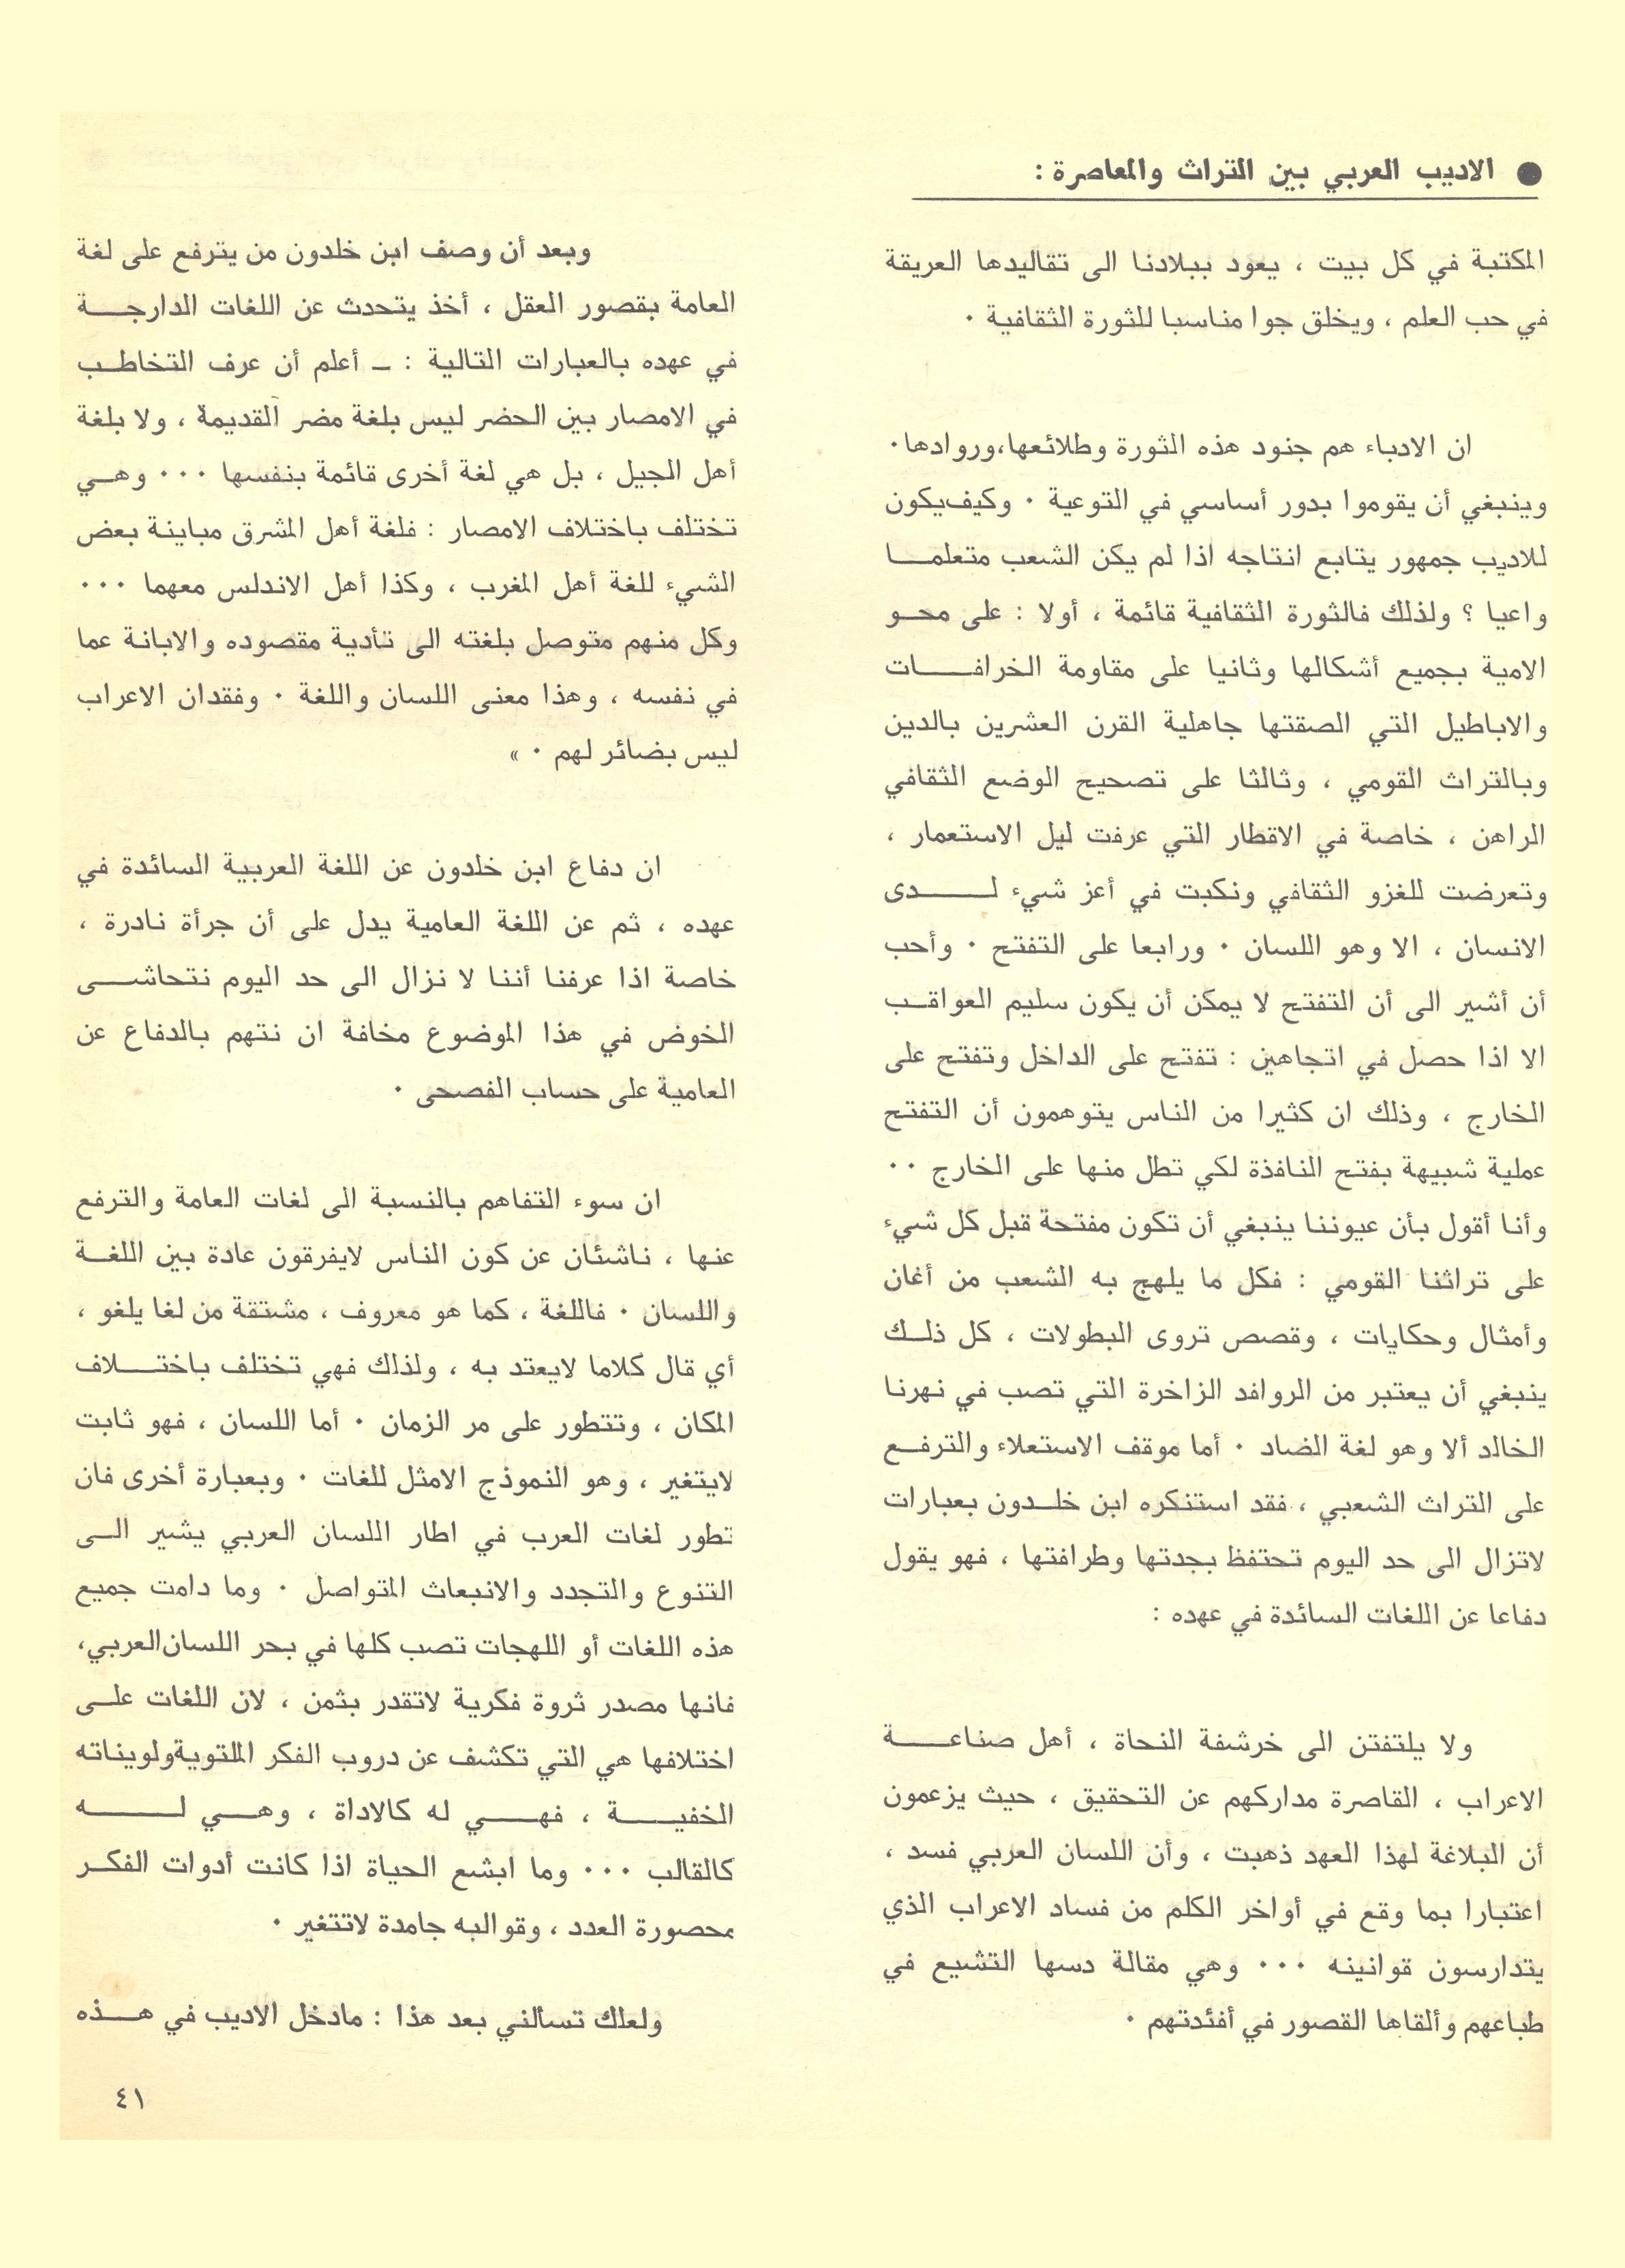 ● الاديب العربي بين التراث والمعاصرة :
المكتبة في كل بيت ، يعود ببلادنا الى تقاليدها العريقة
في حب العلم ، ويخلق جوا مناسبا للثورة الثقافية ٠
ان الادباء هم جنود هذه الثورة وطلائعها،وروادها٠
وينبغي أن يقوموا بدور أساسي في التوعية ٠ وكيف‌يكون
للاديب جمهور يتابع انتاجه اذا لم يكن الشعب متعلمـــا
واعيا ؟ ولذلك فالثورة الثقافية قائمة ، أولا : على محــو
الامية بجميع أشكالها وثانيا على مقاومة الخرافـــات
والاباطيل التي الصقتها جاهلية القرن العشرين بالدين
وبالتراث القومي ، وثالثا على تصحيح الوضع الثقافي
الراهن ، خاصة في الاقطار التي عرفت ليل الاستعمار ،
وتعرضت للغزو الثقافي ونكبت في أعز شيء لــــدى
الانسان ، الا وهو اللسان ٠ ورابعا على التفتح ٠ وأحب
أن أشير الى أن التفتح لا يمكن أن يكون سليم العواقــب
الا اذا حصل في اتجاهين : تفتح على الداخل وتفتح على
الخارج ، وذلك ان كثيرا من الناس يتوهمون أن التفتح
عملية شبيهة بفتح النافذة لكي تطل منها على الخارج ٠٠
وأنا أقول بأن عيوننا ينبغي أن تكون مفتحة قبل كل شيء
على تراثنا القومي : فكل ما يلهج به الشعب من أغان
وأمثال وحكايات ، وقصص تروى البطولات ، كل ذلــك
ينبغي أن يعتبر من الروافد الزاخرة التي تصب في نهرنا
الخالد ألا وهو لغة الضاد ٠ أما موقف الاستعلاء والترفــع
على التراث الشعبي ، فقد استنكره ابن خلــدون بعبارات
لاتزال الى حد اليوم تحتفظ بجدتها وطرافتها ، فهو يقول
دفاعا عن اللغات السائدة في عهده :
ولا يلتفتن الى خرشفة النحاة ، أهل صناعـــــة
الاعراب ، القاصرة مداركهم عن التحقيق ، حيث يزعمون
أن البلاغة لهذا العهد ذهبت ، وأن اللسان العربي فسد ،
اعتبارا بما وقع في أواخر الكلم من فساد الاعراب الذي
يتدارسون قوانينه ٠٠٠ وهي مقالة دسها التشيع في
طباعهم وألقاها القصور في أفئدتهم ٠
وبعد أن وصف ابن خلدون من يترفع على لغة
العامة بقصور العقل ، أخذ يتحدث عن اللغات الدارجـــة
في عهده بالعبارات التالية : ـ أعلم أن عرف التخاطــب
في الامصار بين الحضر ليس بلغة مضر القديمة ، ولا بلغة
أهل الجيل ، بل هي لغة أخرى قائمة بنفسها ٠٠٠ وهــي
تختلف باختلاف الامصار : فلغة أهل المشرق مباينة بعض
الشيء للغة أهل المغرب ، وكذا أهل الاندلس معهما ٠٠٠
وكل منهم متوصل بلغته الى تأدية مقصوده والابانة عما
في نفسه ، وهذا معنى اللسان واللغة ٠ وفقدان الاعراب
ليس بضائر لهم ٠ »
ان دفاع ابن خلدون عن اللغة العربية السائدة في
عهده ، ثم عن اللغة العامية يدل على أن جرأة نادرة ،
خاصة اذا عرفنا أننا لا نزال الى حد اليوم نتحاشــى
الخوض في هذا الموضوع مخافة ان نتهم بالدفاع عن
العامية على حساب الفصحى ٠
ان سوء التفاهم بالنسبة الى لغات العامة والترفع
عنها ، ناشئان عن كون الناس لايفرقون عادة بين اللغــة
واللسان ٠ فاللغة ، كما هو معروف ، مشتقة من لغا يلغو ،
أي قال كلاما لايعتد به ، ولذلك فهي تختلف باختــلاف
المكان ، وتتطور على مر الزمان ٠ أما اللسان ، فهو ثابت
لايتغير ، وهو النموذج الامثل للغات ٠ وبعبارة أخرى فان
تطور لغات العرب في اطار اللسان العربي يشير الــى
التنوع والتجدد والانبعاث المتواصل ٠ وما دامت جميع
هذه اللغات أو اللهجات تصب كلها في بحر اللسان‌العربي،
فانها مصدر ثروة فكرية لاتقدر بثمن ، لان اللغات علــى
اختلافها هي التي تكشف عن دروب الفكر الملتويةولويناته
الخفيـــة ، فهـــي له كالاداة ، وهـــي لـــــه
كالقالب ٠٠٠ وما ابشع الحياة اذا كانت أدوات الفكــر
محصورة العدد ، وقوالبه جامدة لاتتغير ٠
ولعلك تسألني بعد هذا : مادخل الاديب في هـــذه
٤١